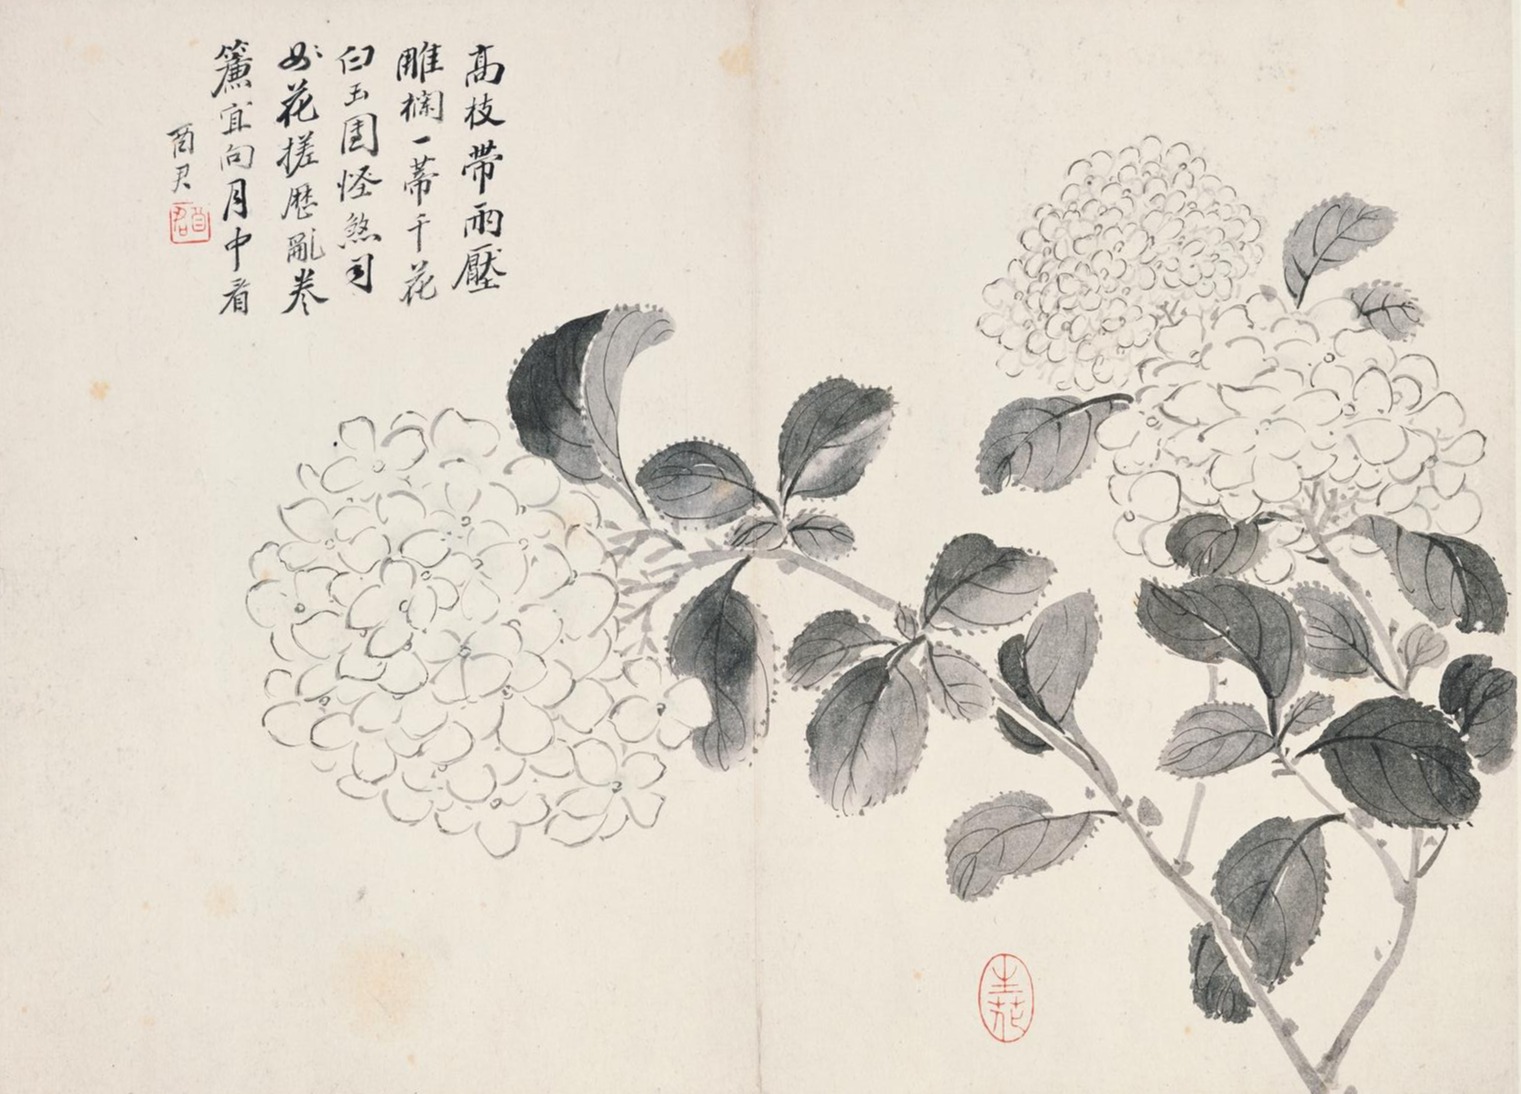 高枝帶雨壓
雕欄一蒂千花
白玉團怪煞司
花搓歷亂卷
簾宜向月中看
酉君
酉君
生花